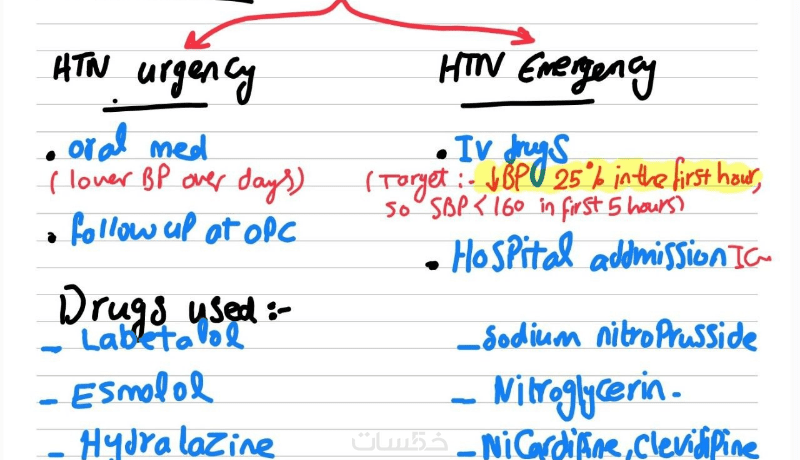 HTN urgency
HTN Emergency
• oral med
(lower BP over days)
• follow up at OPC
• IV drugs
(Target :- ↓BP 25% in the first hour,
so SBP < 160 in first 5 hours)
• Hospital addmission
Drugs used :-
- Labetalol
- Esmolol
- Hydralazine
- Sodium nitroprusside
- Nitroglycerin.
- Nicardipine, clevidipine
خمسات